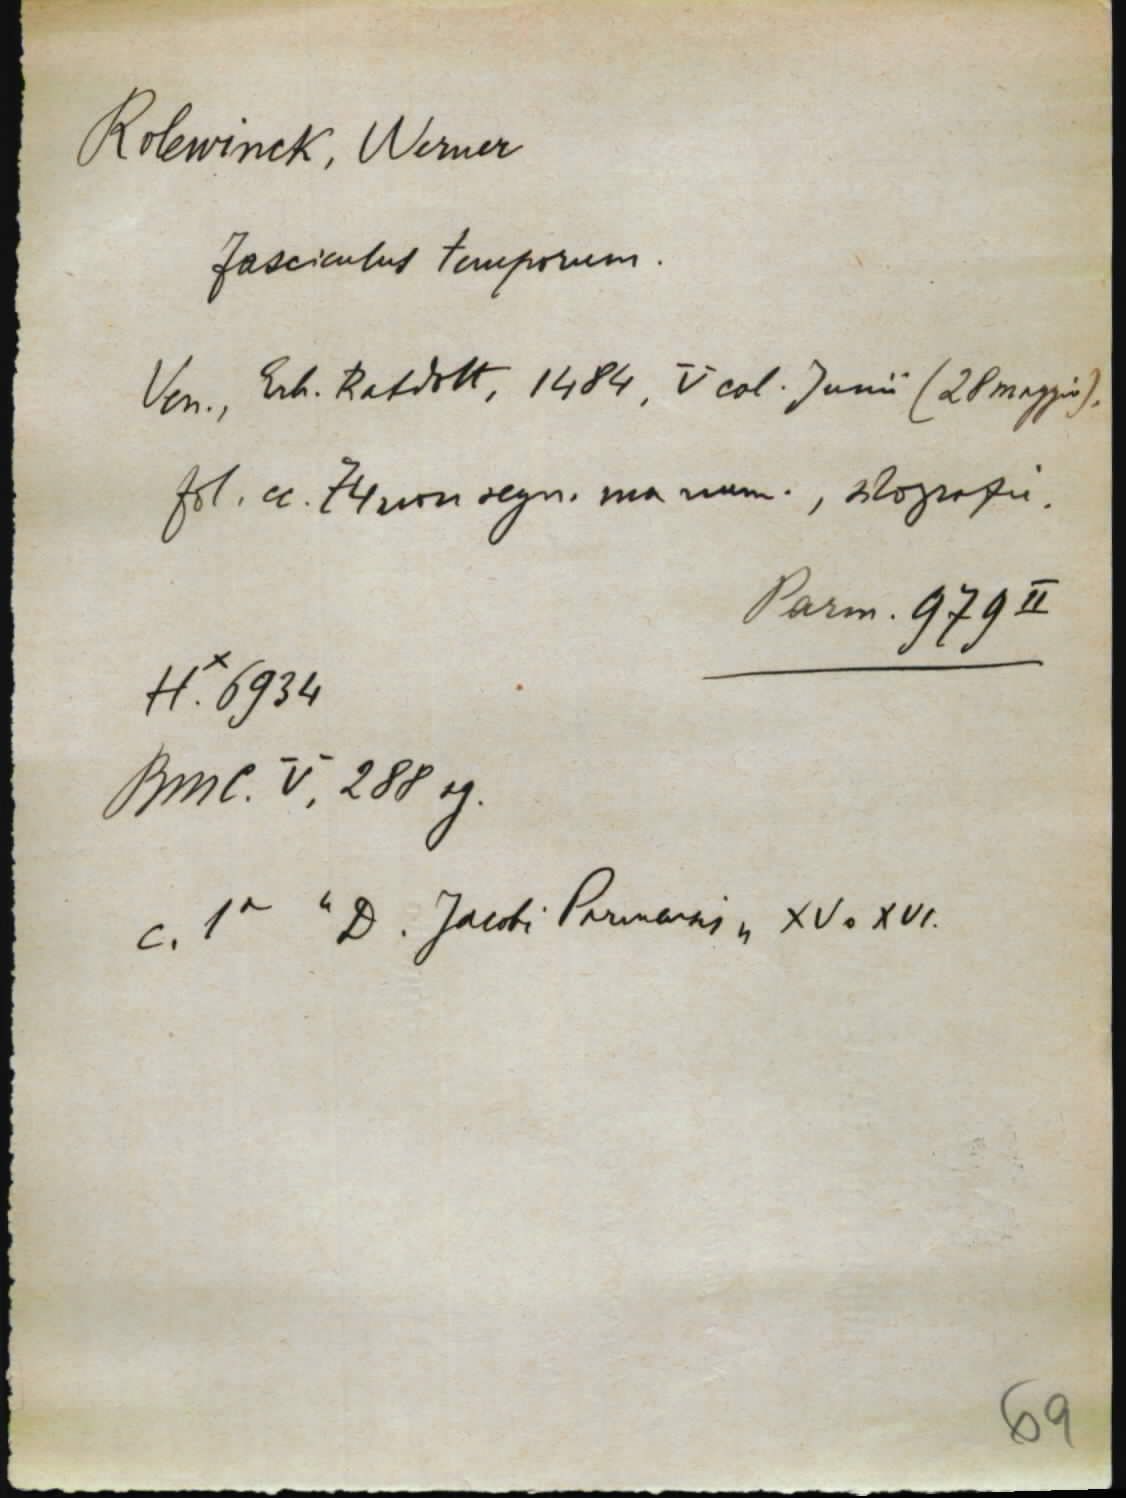 Rolewinck, Werner
Fasciculus temporum.
Ven., Erh. Ratdolt, 1484, V cal. Junii (28 maggio).
fol. cc. 74 non segn. ma num., silografie.
Parm. 979 II
H.x 6934
BMC. V, 288 sg.
c. 1a "D. Jacobi Parmensis„ XV o XVI.
69